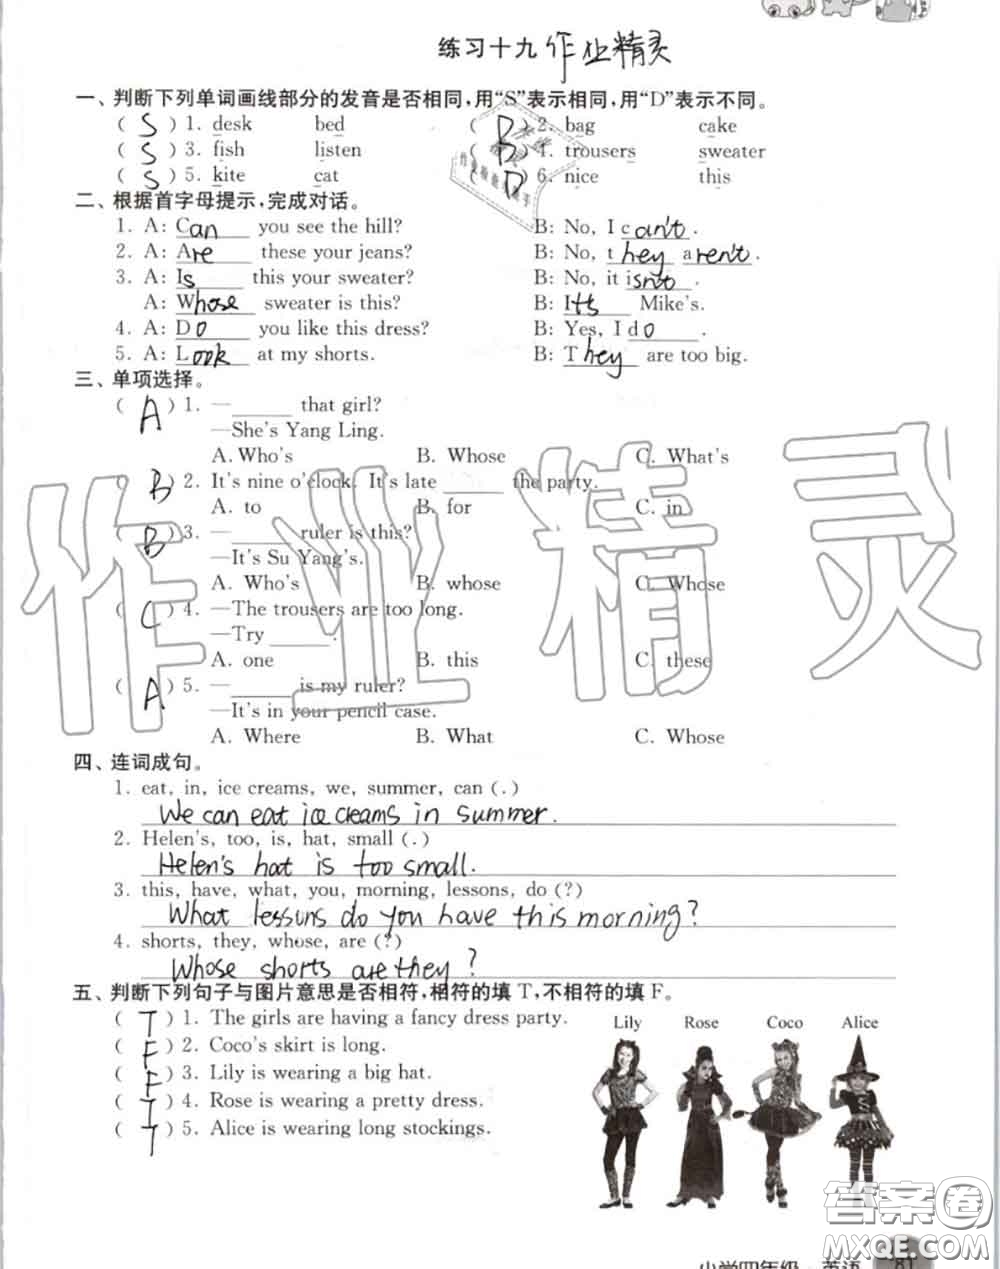 练习十九 作业精灵
一、判断下列单词画线部分的发音是否相同,用“S”表示相同,用“D”表示不同。
( S ) 1. desk bed ( D ) 2. bag cake
( S ) 3. fish listen ( D ) 4. trousers sweater
( S ) 5. kite cat ( D ) 6. nice this
二、根据首字母提示,完成对话。
1. A: Can you see the hill? B: No, I can't.
2. A: Are these your jeans? B: No, they aren't.
3. A: Is this your sweater? B: No, it isn't.
A: Whose sweater is this? B: It's Mike's.
4. A: Do you like this dress? B: Yes, I do.
5. A: Look at my shorts. B: They are too big.
三、单项选择。
( A ) 1. —______ that girl?
—She's Yang Ling.
A. Who's B. Whose C. What's
( B ) 2. It's nine o'clock. It's late ______ the party.
A. to B. for C. in
( B ) 3. —______ ruler is this?
—It's Su Yang's.
A. Who's B. whose C. Whose
( C ) 4. —The trousers are too long.
—Try ______.
A. one B. this C. these
( A ) 5. —______ is my ruler?
—It's in your pencil case.
A. Where B. What C. Whose
四、连词成句。
1. eat, in, ice creams, we, summer, can (.)
We can eat ice creams in summer.
2. Helen's, too, is, hat, small (.)
Helen's hat is too small.
3. this, have, what, you, morning, lessons, do (?)
What lessuns do you have this morning?
4. shorts, they, whose, are (?)
Whose shorts are they?
五、判断下列句子与图片意思是否相符,相符的填 T,不相符的填 F。
( T ) 1. The girls are having a fancy dress party.
( F ) 2. Coco's skirt is long.
( F ) 3. Lily is wearing a big hat.
( T ) 4. Rose is wearing a pretty dress.
( T ) 5. Alice is wearing long stockings.
Lily Rose Coco Alice
作业精灵
答案圈
MXQE.COM
小学四年级·英语 81